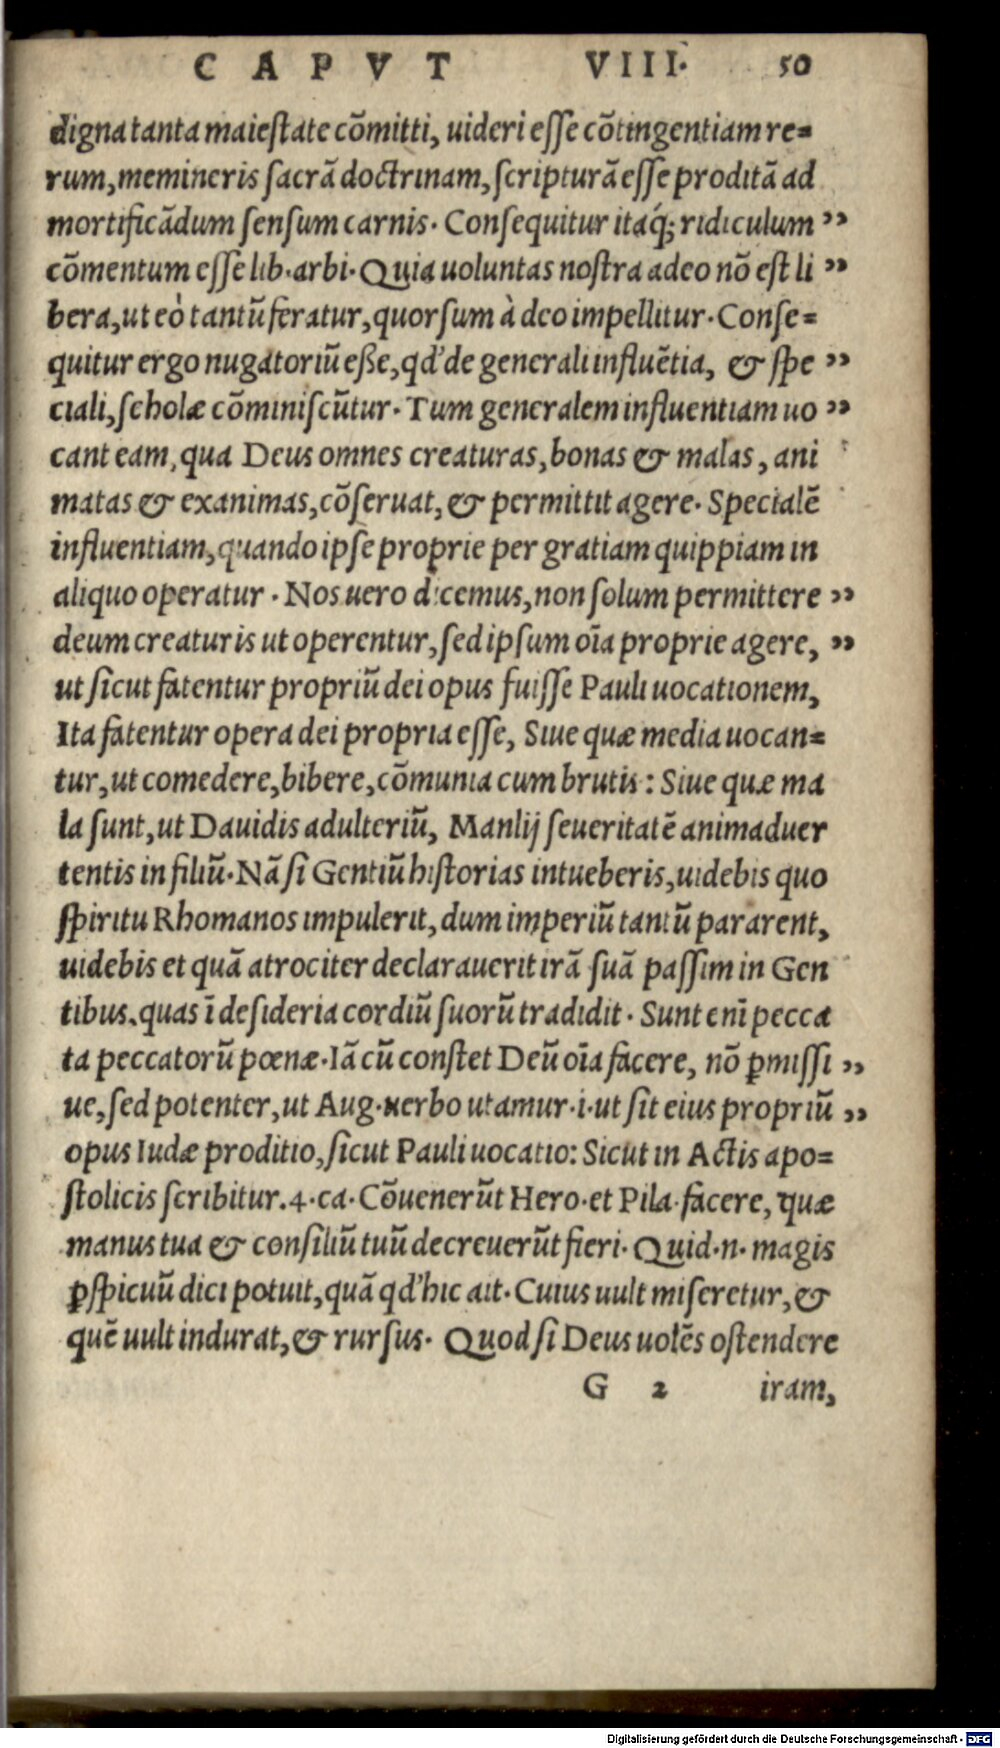 CAPVT VIII. 50
digna tanta maiestate cõmitti, uideri esse cõtingentiam re=
rum, memineris sacrã doctrinam, scripturã esse proditã ad
mortificãdum sensum carnis. Consequitur itaq́; ridiculum ,,
cõmentum esse lib. arbi. Quia uoluntas nostra adeo nõ est li ,,
bera, ut eò tantũ feratur, quorsum à deo impellitur. Conse=
quitur ergo nugatoriũ eße, qd' de generali influẽtia, & spe ,,
ciali, scholæ cõminiscũtur. Tum generalem influentiam uo ,,
cant eam, qua Deus omnes creaturas, bonas & malas, ani
matas & exanimas, cõseruat, & permittit agere. Specialẽ
influentiam, quando ipse proprie per gratiam quippiam in
aliquo operatur. Nos uero dicemus, non solum permittere ,,
deum creaturis ut operentur, sed ipsum oĩa proprie agere, ,,
ut sicut fatentur propriũ dei opus fuisse Pauli uocationem,
Ita fatentur opera dei propria esse, Siue quæ media uocan=
tur, ut comedere, bibere, cõmunia cum brutis: Siue quæ ma
la sunt, ut Dauidis adulteriũ, Manlij seueritatẽ animaduer
tentis in filiũ. Nã si Gentiũ historias intueberis, uidebis quo
spiritu Rhomanos impulerit, dum imperiũ tantũ pararent,
uidebis et quã atrociter declarauerit irã suã passim in Gen
tibus, quas ĩ desideria cordiũ suorũ tradidit. Sunt enĩ pecca
ta peccatorũ pœnæ. Iã cũ constet Deũ oĩa facere, nõ ꝑmissi ,,
ue, sed potenter, ut Aug. uerbo utamur. i. ut sit eius propriũ ,,
opus Iudæ proditio, sicut Pauli uocatio: Sicut in Actis apo=
stolicis scribitur. 4. ca. Cõuenerũt Hero. et Pila. facere, quæ
manus tua & consiliũ tuũ decreuerũt fieri. Quid. n. magis
ꝑspicuũ dici potuit, quã qd' hic ait. Cuius uult miseretur, &
quẽ uult indurat, & rursus. Quod si Deus uolẽs ostendere
G 2 iram,
Digitalisierung gefördert durch die Deutsche Forschungsgemeinschaft - DFG